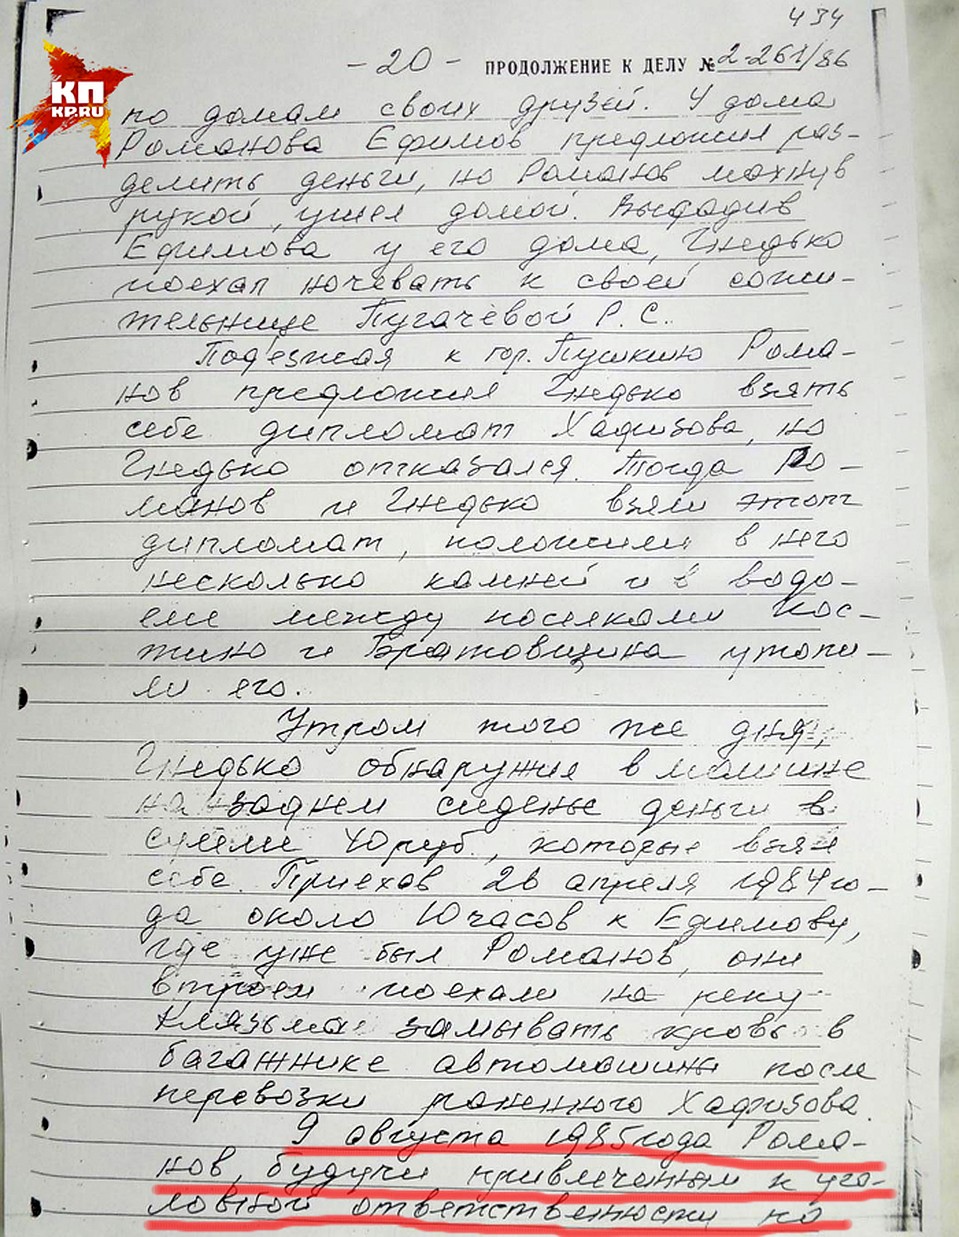 434
- 20 - ПРОДОЛЖЕНИЕ К ДЕЛУ № 2-261/86
КП
KP.RU
по домам своих друзей. У дома
Романова Ефимов предложил раз-
делить деньги, но Романов махнув
рукой, ушел домой. Высадив
Ефимова у его дома, Гнедько
поехал ночевать к своей сожи-
тельнице Пугачевой Р. С.
Под'езжая к гор. Пушкино Рома-
нов предложил Гнедько взять
себе дипломат Хафизова, но
Гнедько отказался. Тогда Ро-
манов и Гнедько взяли этот
дипломат, положили в него
несколько камней и в водо-
еме между поселками Кос-
тино и Братовщина утопи-
ли его.
Утром того же дня,
Гнедько обнаружил в машине
на заднем сиденье деньги в
сумме 40 руб, которые взял
себе. Приехав 26 апреля 1984 го-
да около 10 часов к Ефимову,
где уже был Романов, они
втроем поехали на реку
Клязьма замывать кровь в
багажнике автомашины после
перевозки раненного Хафизова.
9 августа 1985 года Рома-
нов, будучи привлеченным к уго-
ловной ответственности по